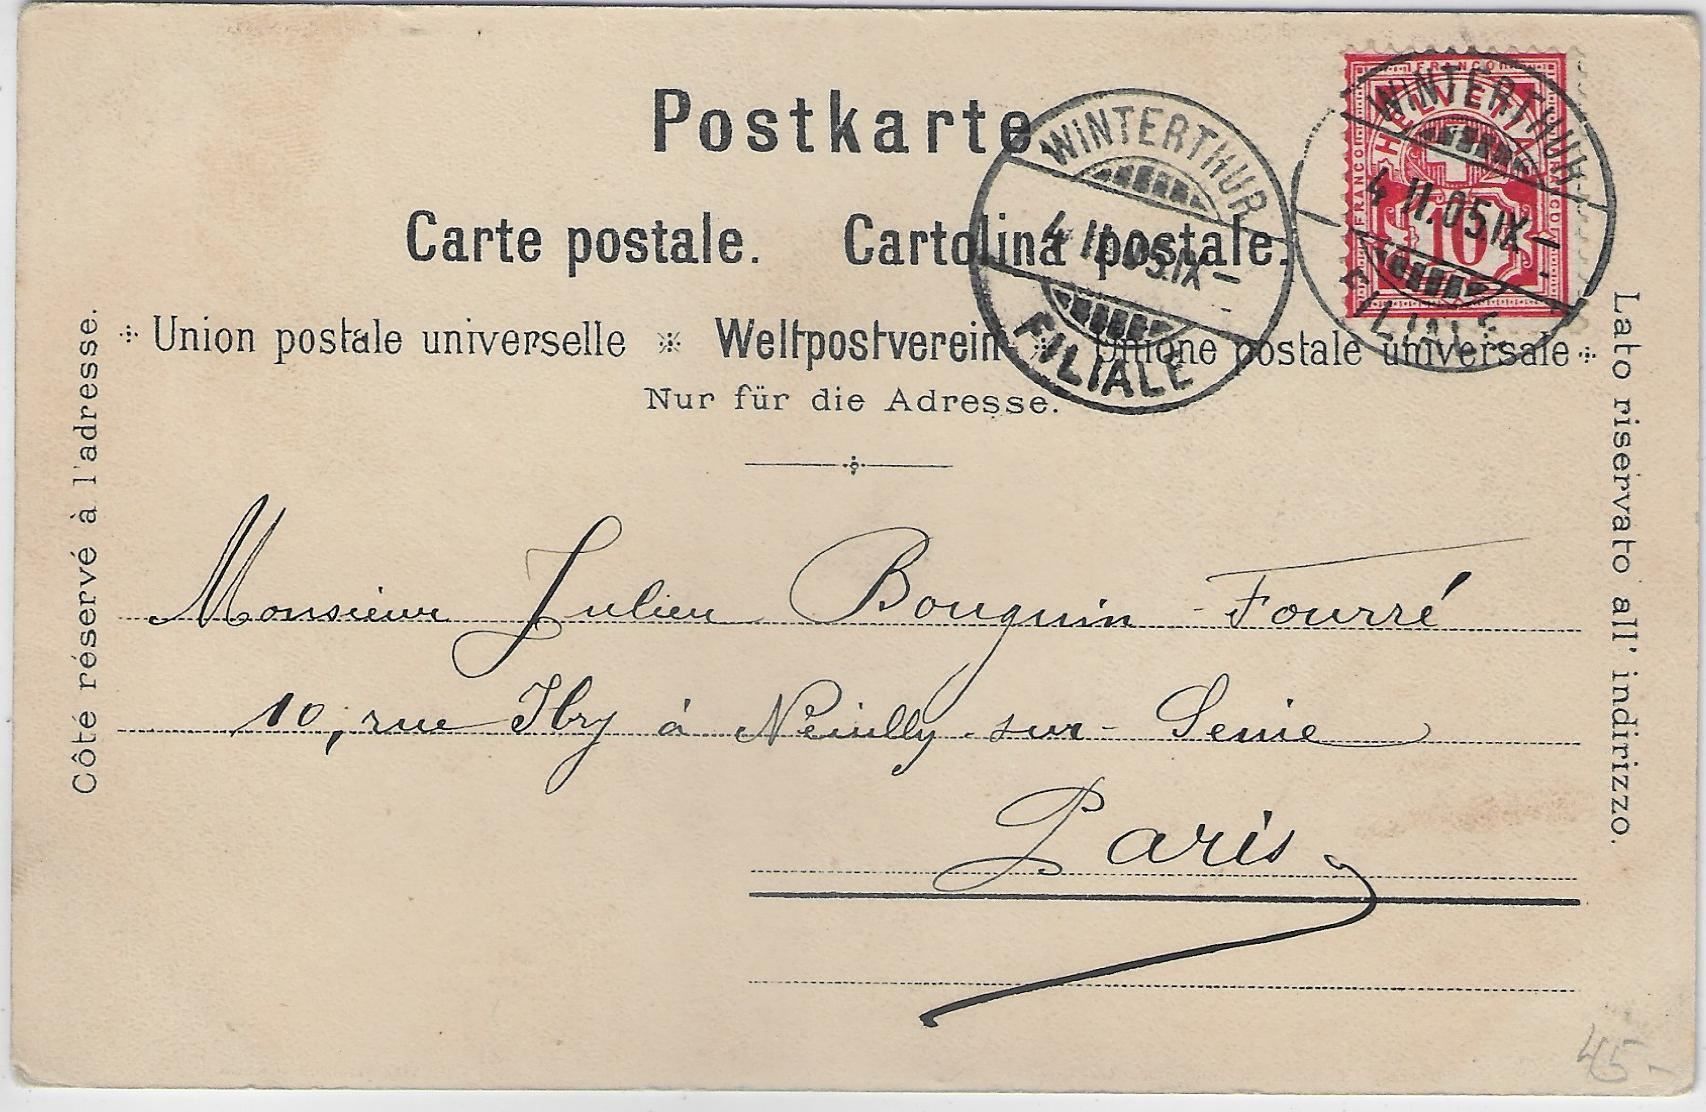 Postkarte
Carte postale. Cartolina postale.
Union postale universelle Weltpostverein Unione postale universale
Nur für die Adresse.
Côté réservé à l'adresse.
Lato riservato all' indirizzo.
WINTERTHUR
4 II.05.IX–
FILIALE
WINTERTHUR
4 II.05.IX–
FILIALE
FRANCO
HELVETIA
FRANCO
FRANCO
10
Monsieur Julien Bouquin-Fourré
10, rue Ybry à Neuilly-sur-Seine
Paris
45.-